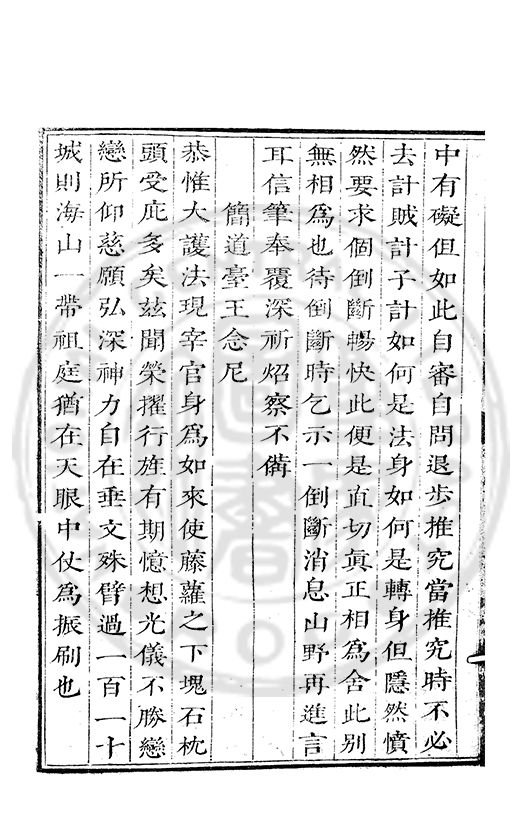 中有礙但如此自審自問退步推究當推究時不必
去計賊計子計如何是法身如何是轉身但隱然憤
然要求個倒斷暢快此便是直切眞正相爲舍此別
無相爲也待倒斷時乞示一倒斷消息山野再進言
耳信筆奉覆深祈炤察不備
簡道臺王念尼
恭惟大護法現宰官身爲如來使藤蘿之下塊石枕
頭受庇多矣茲聞榮擢行旌有期憶想光儀不勝戀
戀所仰慈願弘深神力自在垂文殊臂過一百一十
城則海山一帶祖庭猶在天眼中仗爲振刷也